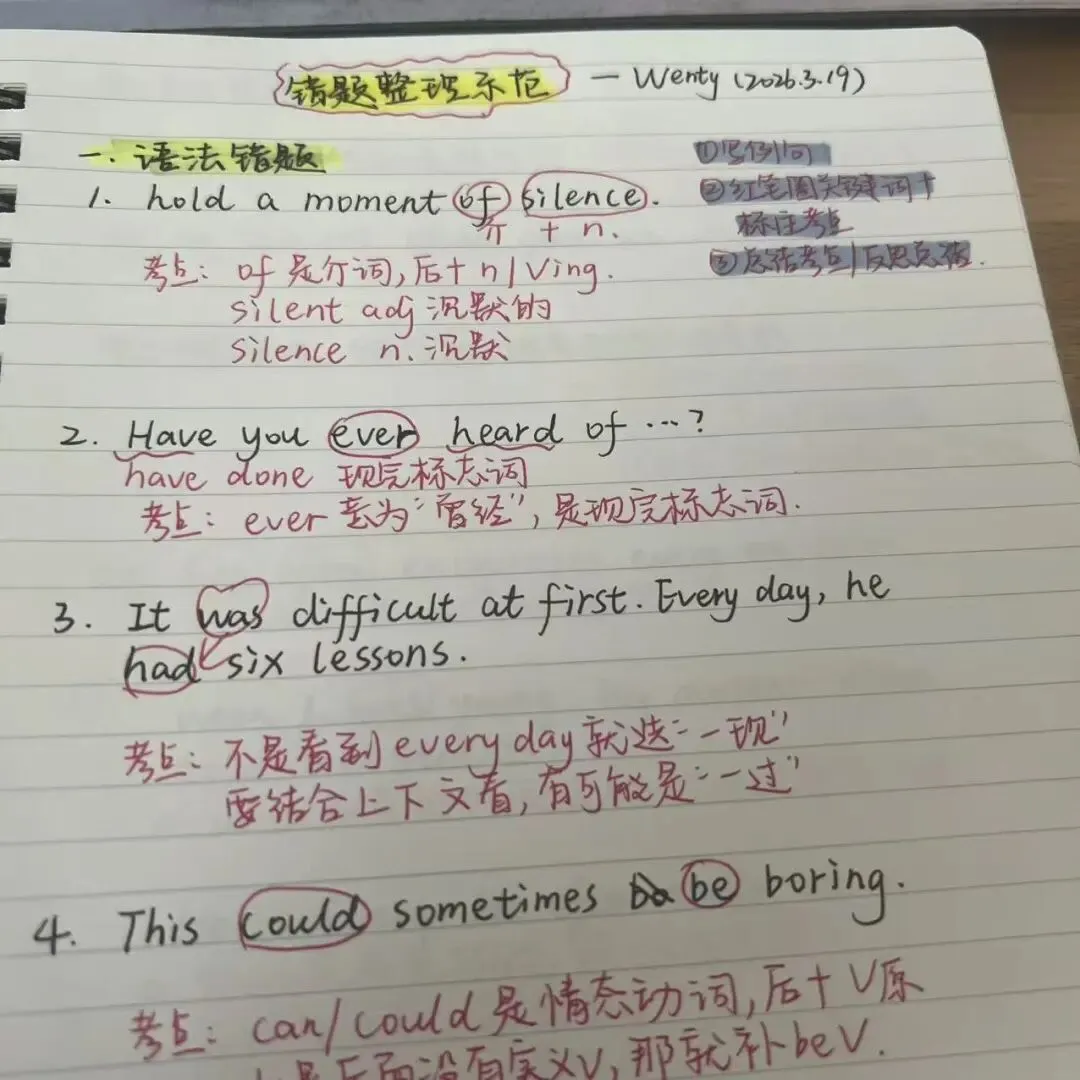 错题整理示范 — Wenty (2026.3.19)
一. 语法错题
①写例句
②红笔圈关键词+
标注考点
③总结考点/反思总结.
1. hold a moment of silence.
介 + n.
考点: of 是介词,后+ n/Ving.
silent adj 沉默的
silence n. 沉默
2. Have you ever heard of …?
have done 现完标志词
考点: ever 意为“曾经”, 是现完标志词.
3. It was difficult at first. Every day, he
had six lessons.
考点: 不是看到 every day 就选“一现”
要结合上下文看, 有可能是“一过”
4. This could sometimes be boring.
考点: can/could 是情态动词, 后+ V原
是后面没有实义V, 那就补beV.